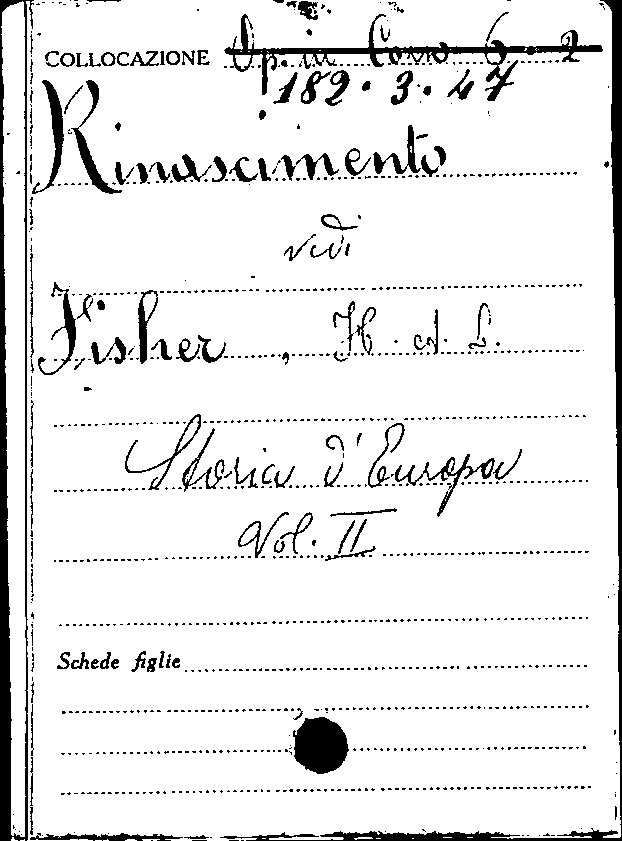 COLLOCAZIONE Op. in Corso 6. 2
182. 3. 47
Rinascimento
vedi
Fisher, H. A. L.
Storia d'Europa
Vol. II
Schede figlie